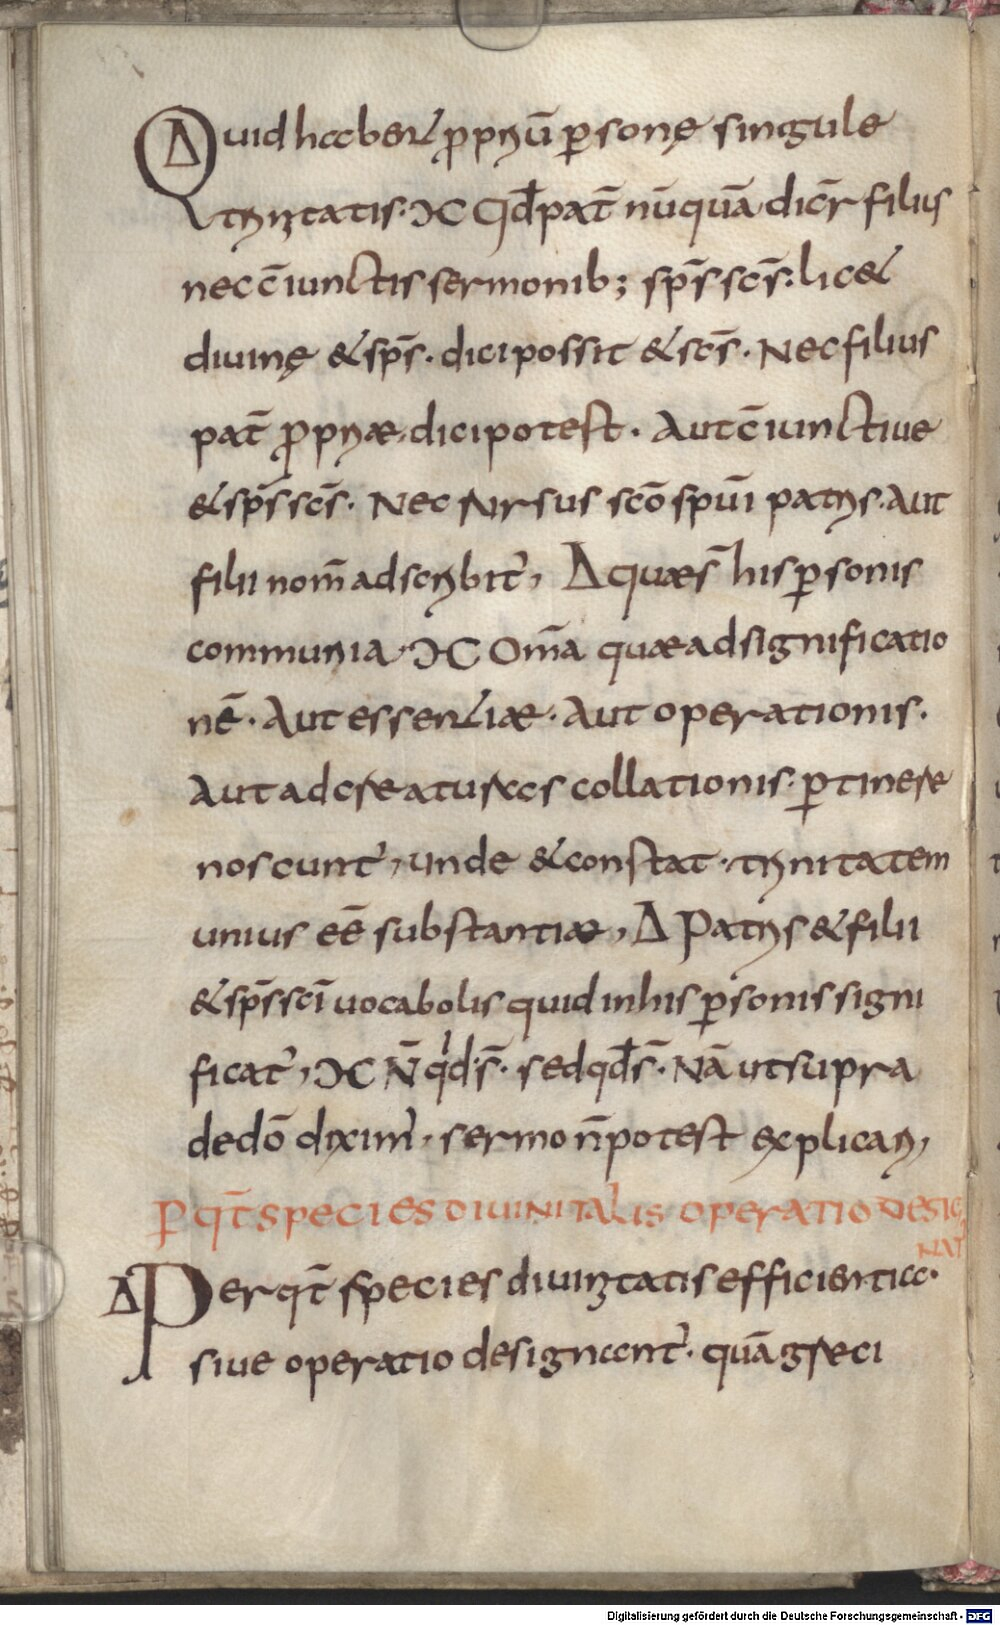 Δ Quid habent ꝓpriū ꝑsonę singulę
trinitatis· ϽC Qd̄ pat̄ nūquā dicr̄ filius
nec c̄iunctis sermonib; sp̄s sc̄s· lic&
diuinę & sp̄s· dici possit & sc̄s· Nec filius
pat̄ ꝓpriæ· dici potest· Aut c̄iunctiue
& sp̄s sc̄s· Nec rursus sc̄o spūi patris· aut
filii nom̄ adscribit᾿, Δ quæ s̄ his ꝑsonis
communia· ϽC Om̄a quæ ad significatio
nē· Aut essentiæ· Aut operationis·
Aut ad creaturas collationis· ꝑtinere
noscunt᾿, unde & constat· trinitatem
unius eē substantiæ, Δ Patris & filii
& sp̄s sc̄i uocabolis quid in his ꝑsonis signi
ficat᾿, ϽC N̄ qid· s̄· sed qd̄ s̄· Nā ut supra
de dō dixim᾿· sermo n̄ potest explicari,
ꝑ qt̄ species diuinitatis operatio desig
nat᾿
Δ Per qt̄ species diuinitatis efficientia·
siue operatio designant᾿· quā greci
Digitalisierung gefördert durch die Deutsche Forschungsgemeinschaft - DFG